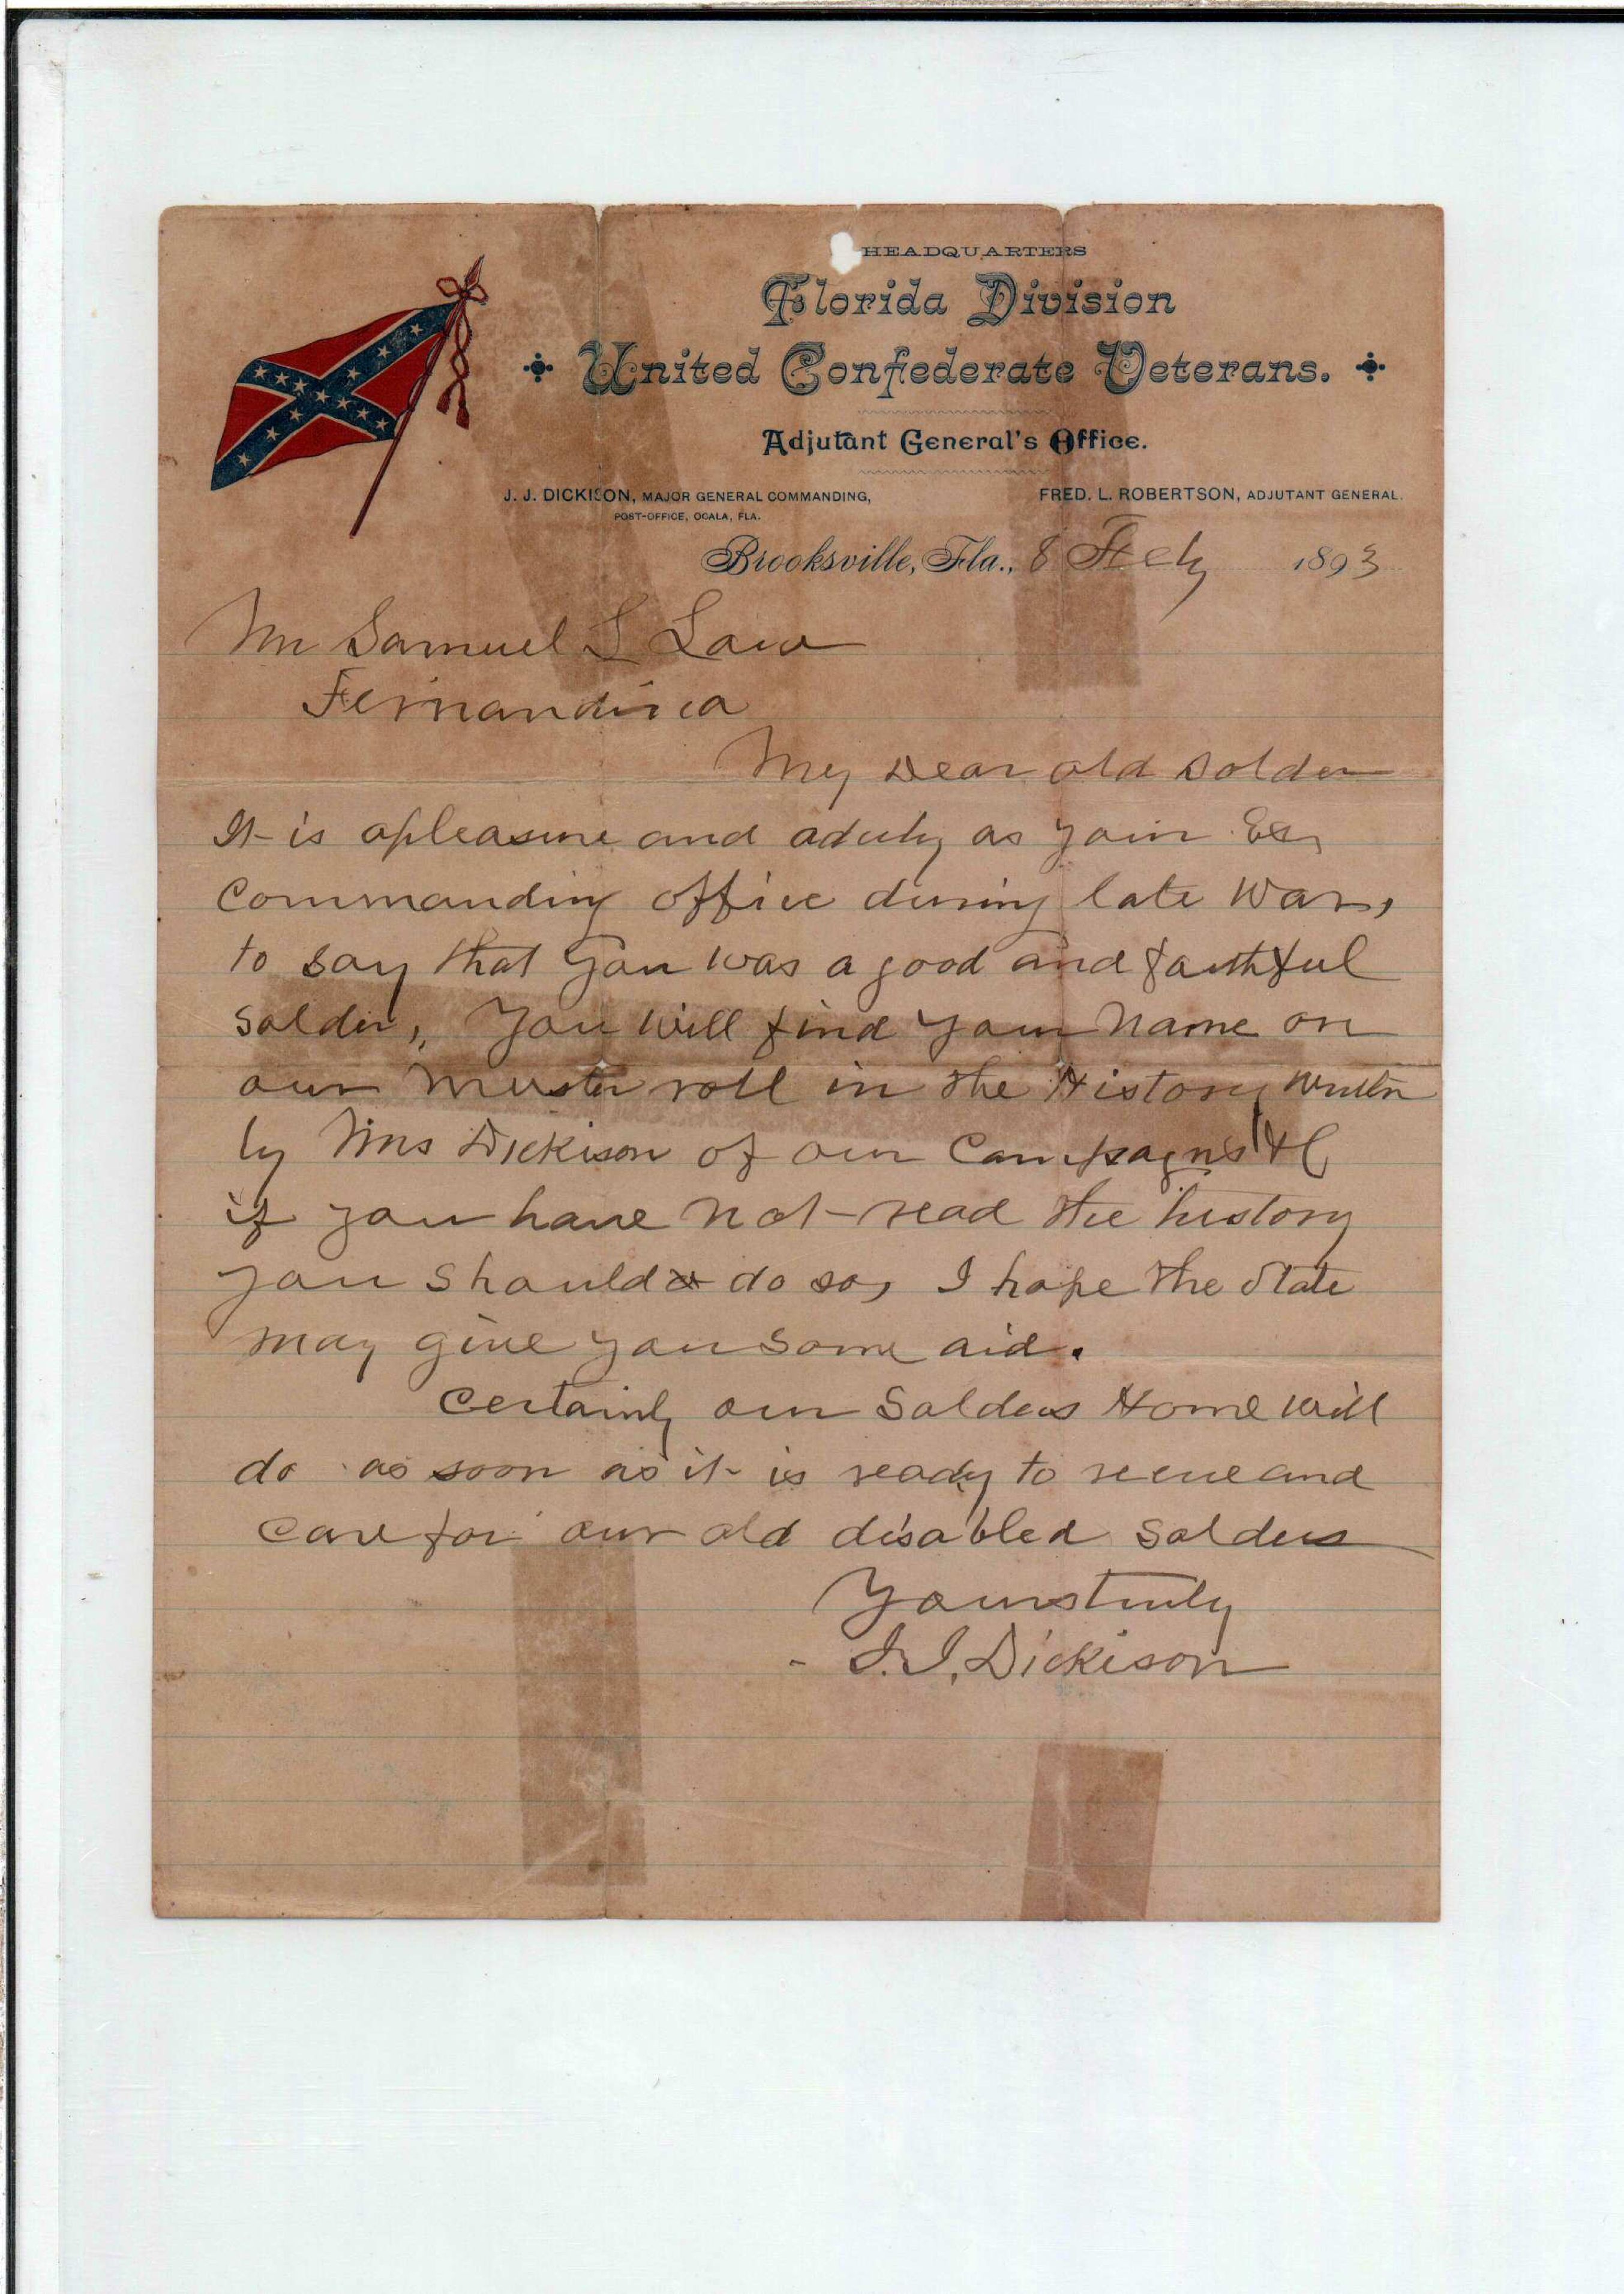 HEADQUARTERS
Florida Division
United Confederate Veterans.
Adjutant General's Office.
J. J. DICKISON, MAJOR GENERAL COMMANDING,
POST-OFFICE, OCALA, FLA.
FRED. L. ROBERTSON, ADJUTANT GENERAL.
Brooksville, Fla., 8 Feby 1893
Mr Samuel L Law
Fernandina
My Dear old Solder
It is apleasure and aduty as your Ex
Commanding office during late War,
to say that you was a good and faithful
solder, You will find your Name on
our Muster roll in the History written
by Mrs Dickison of our Campagns &C
if you have not read the history
you should do so, I hope the State
may give you some aid.
Certainly our Solders Home will
do as soon as it is ready to receve and
care for our old disabled Solders
Yours truly
J. J. Dickison